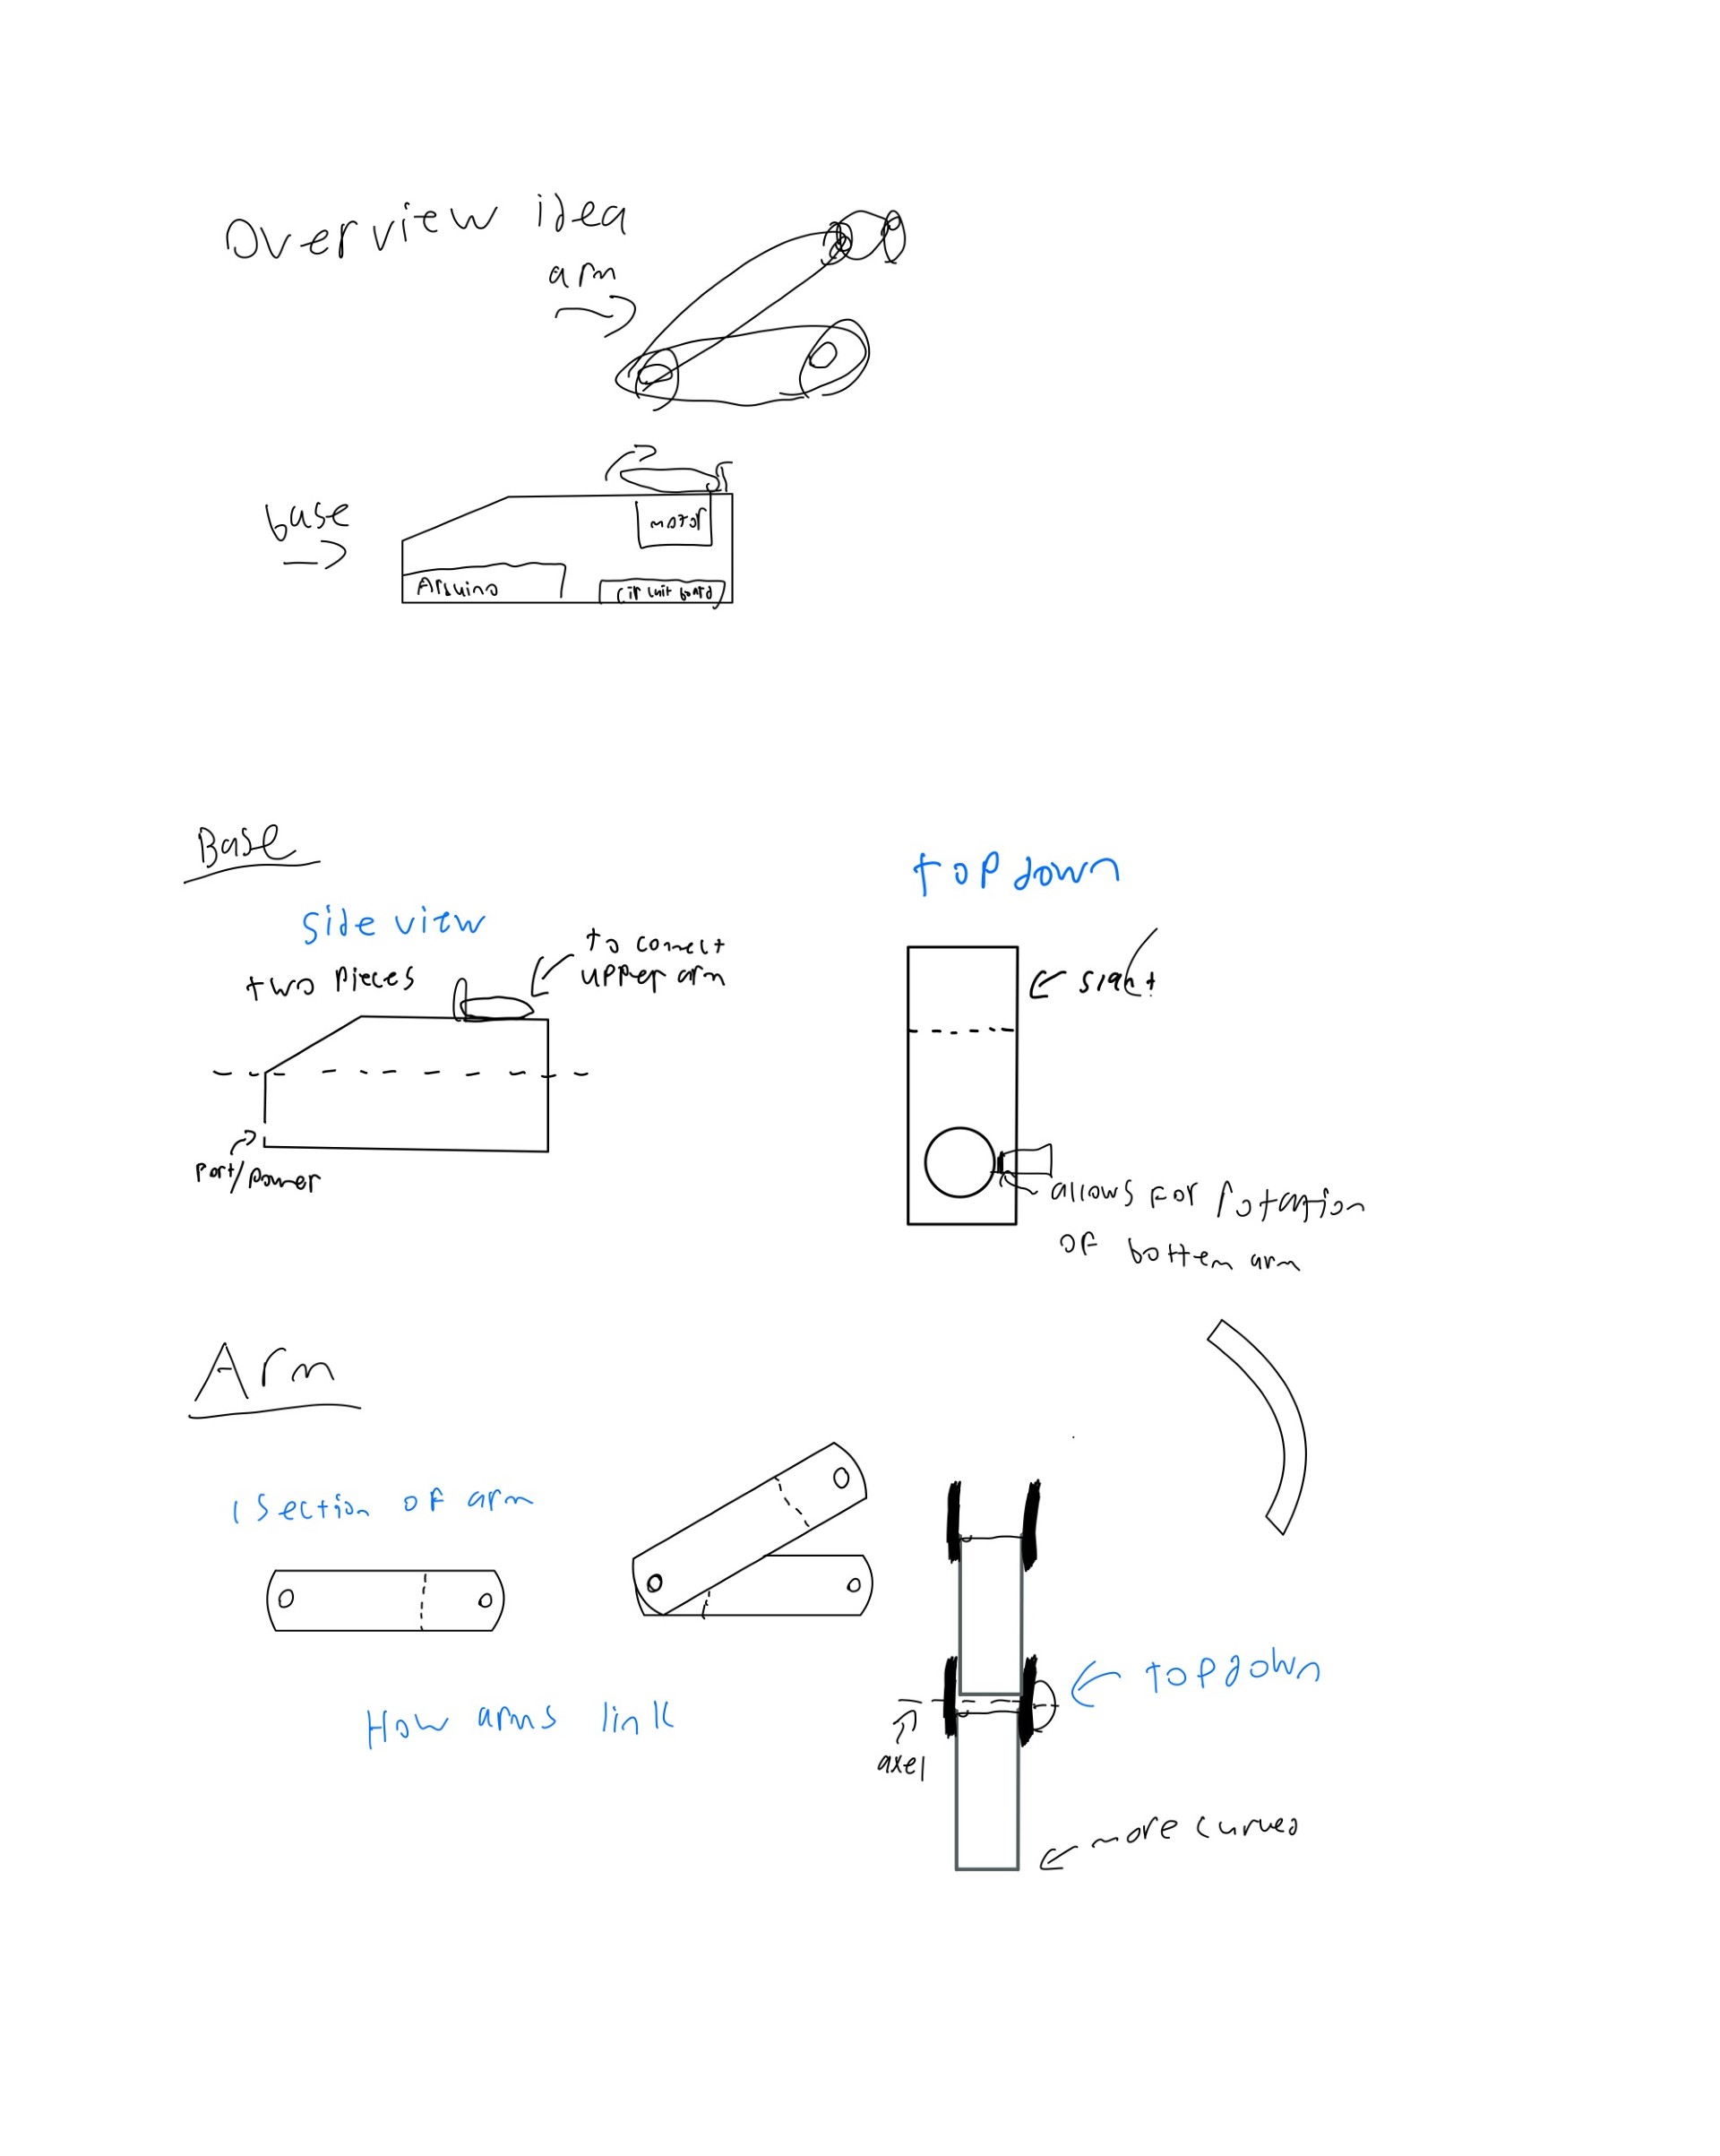 Overview idea
arm
base
motor
Arduino
Circuit board
Base
Side view
two pieces
to conect
upper arm
port/power
top down
allows for rotation
of bottem arm
Arm
1 section of arm
How arms link
top down
axel
more curved